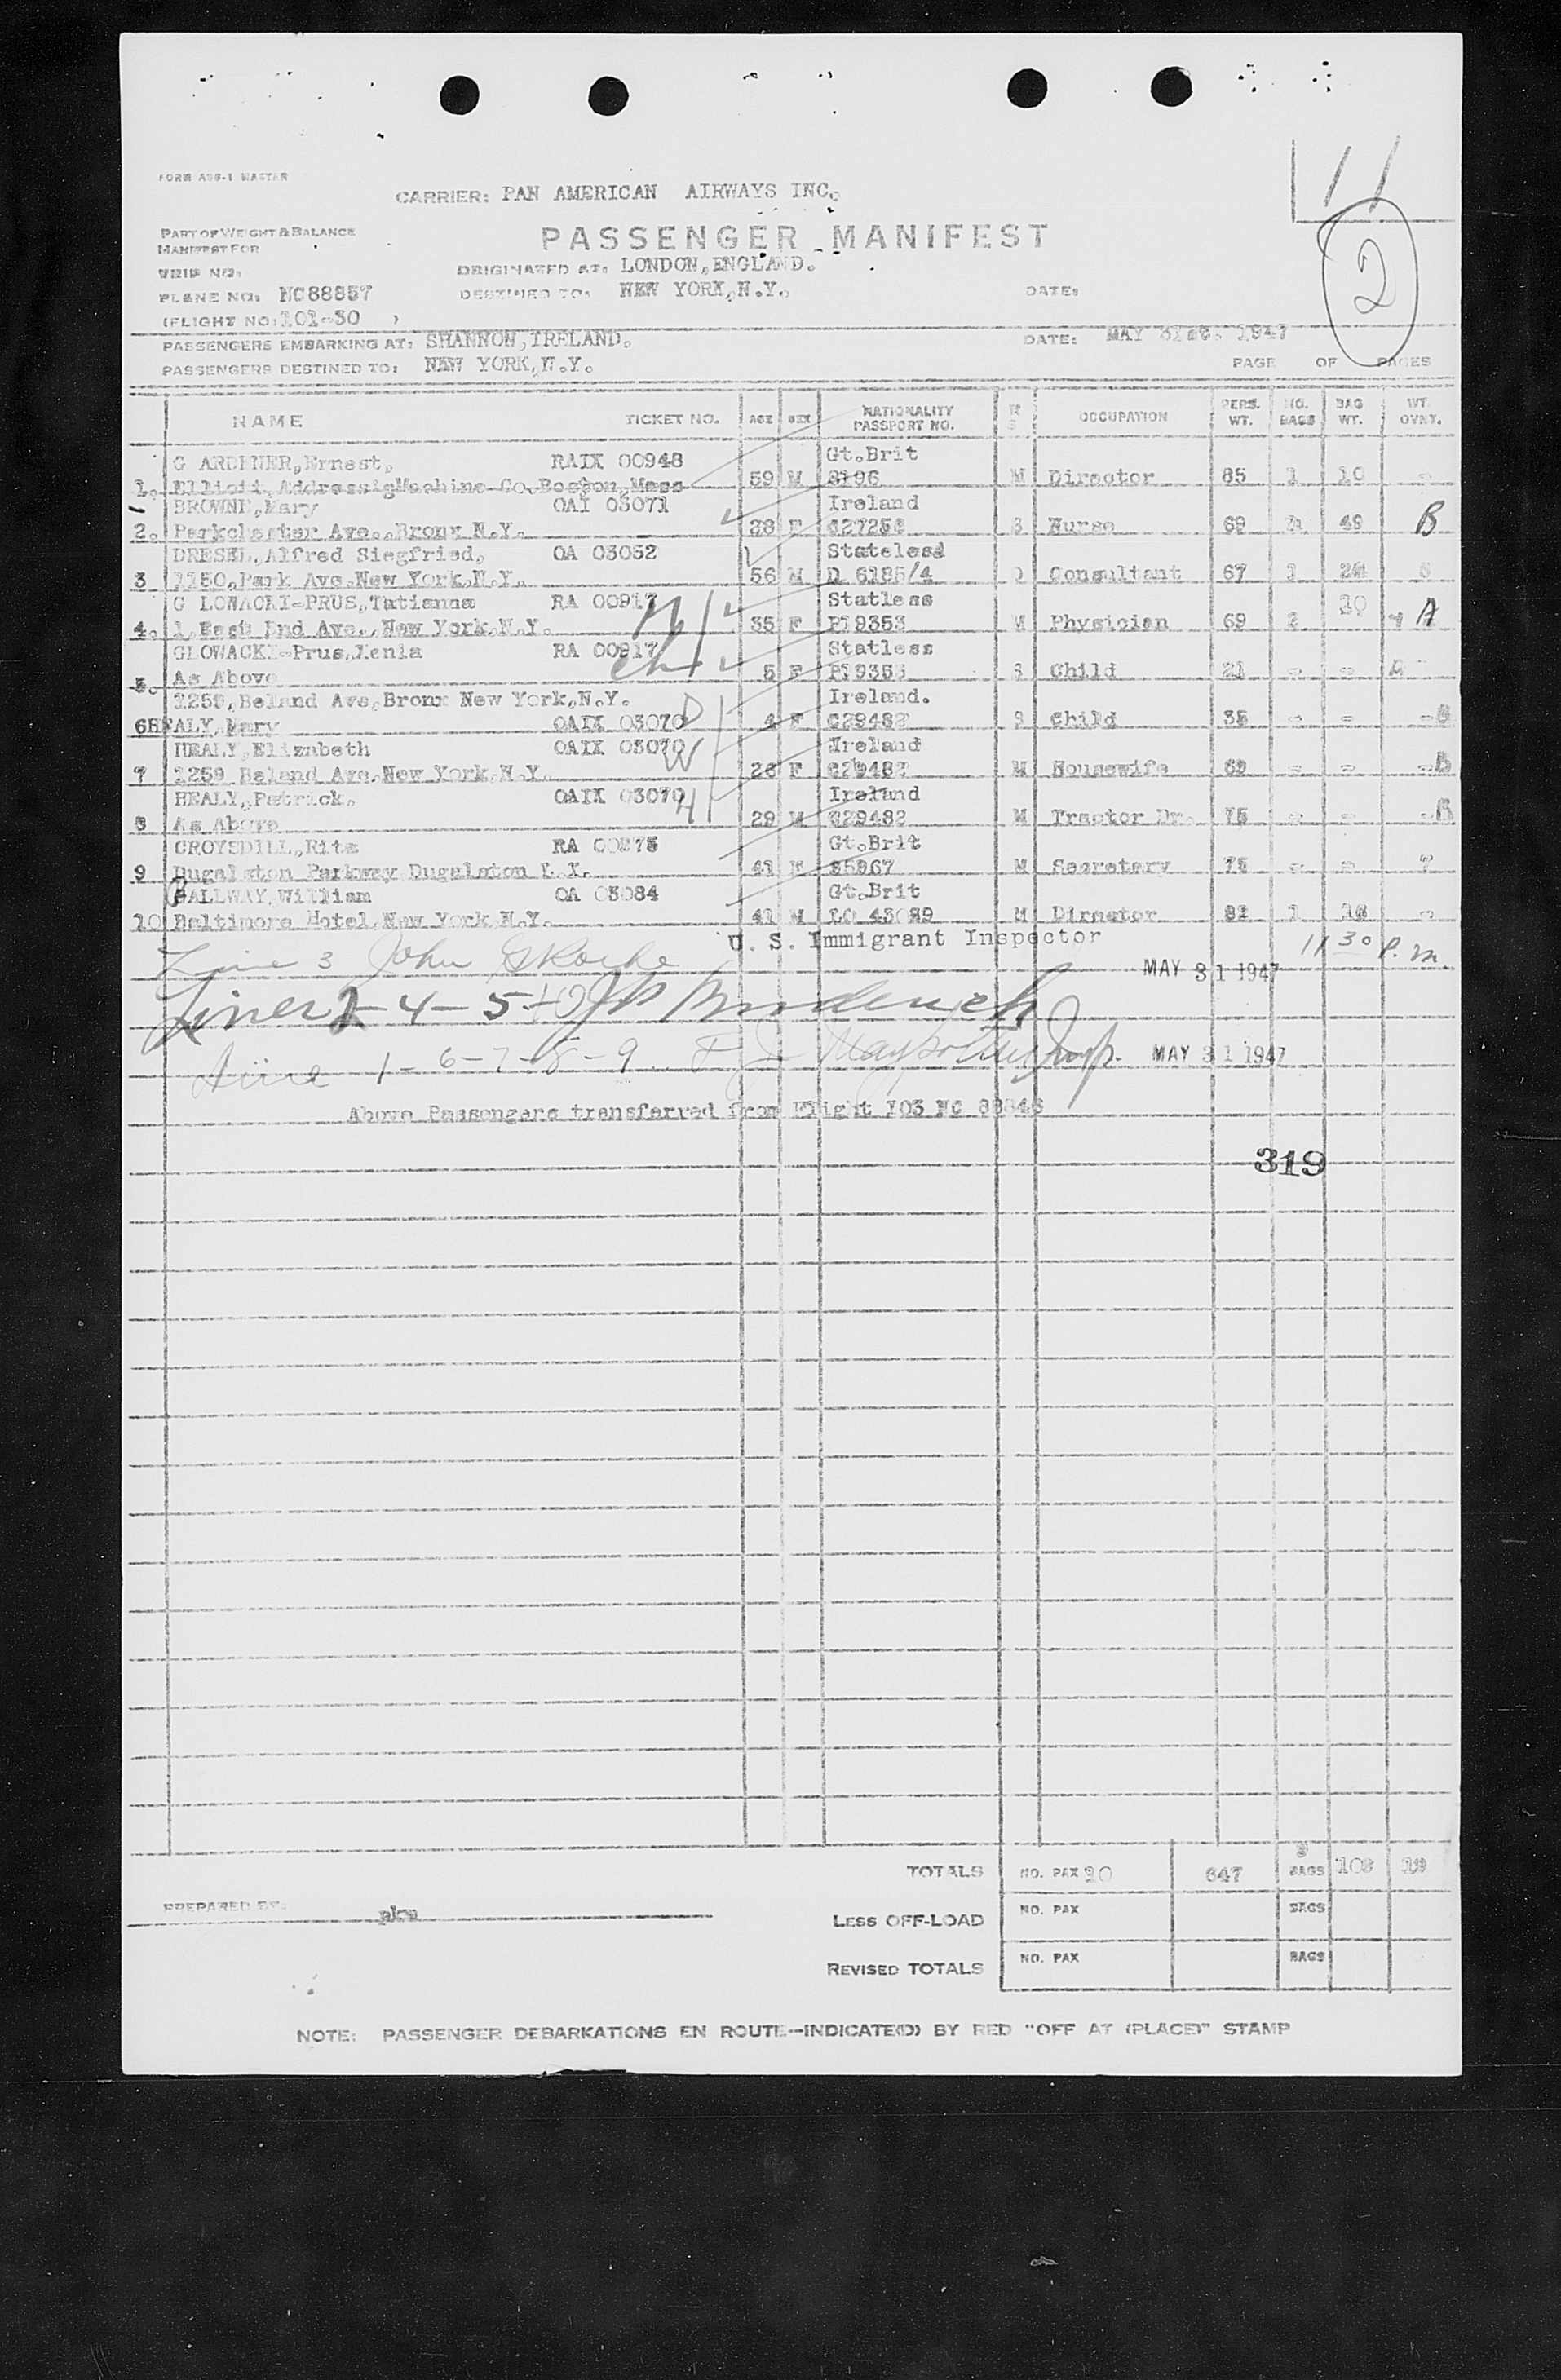 FORM ASG-1 MASTER
CARRIER: PAN AMERICAN AIRWAYS INC.
11
PART OF WEIGHT & BALANCE
MANIFEST FOR
PASSENGER MANIFEST
2
TRIP NO:
ORIGINATED AT: LONDON, ENGLAND.
PLANE NO: NC88857
DESTINED TO: NEW YORK, N.Y.
DATE:
(FLIGHT NO: 101-30 )
PASSENGERS EMBARKING AT: SHANNON, IRELAND.
DATE: MAY 31st. 1947
PASSENGERS DESTINED TO: NEW YORK, N.Y.
PAGE OF PAGES
NAME TICKET NO. AGE SEX NATIONALITY PASSPORT NO. OCCUPATION PERS. WT. NO. BAGS BAG WT. WT. OVNT.
G ARDINER, Ernest, RAIX 00948 Gt.Brit
1. Elliott, AddressigMachine Co. Boston, Mass 59 M 8196 M Director 85 1 10 -
BROWNE, Mary OAI 03071 Ireland
2. Parkchester Ave., Bronx N.Y. 28 F S Nurse 69 49 B
DRESEL, Alfred Siegfried, OA 03052 Stateless
3 1150, Park Ave. New York, N.Y. 56 M D 6185/4 Consultant 67 1
G LOWACKI-PRUS, Tatianna RA 00917 Statless
4. 1, East End Ave., New York, N.Y. 35 F P19353 M Physician 69 2 10 A
GLOWACKI-Prus, Xenia RA 00917 Statless
5. As Above 5 F P19353 S Child 21 - -
1259, Beland Ave, Bronx New York, N.Y. Ireland.
6 HEALY, Mary OAIX 03070 D 4 F C29482 S Child 35 - - - B
HEALY, Elizabeth OAIX 03070 W Ireland
7 1259 Beland Ave. New York, N.Y. 26 F C29482 M Housewife 69 - - - B
HEALY, Patrick, OAIX 03070 H Ireland
8 As Above 29 M C29482 M Tractor Dr. 75 - - - B
CROYSDILL, Rita RA Gt.Brit
9 Dugalston Parkway Dugalston L.I. 41 F 85967 M Secretary 75 - -
GALLWAY, William OA 03084 Gt.Brit
10 Baltimore Hotel, New York N.Y. 41 M LO 43089 M Director 82 1 -
U. S. Immigrant Inspector
Line 3 John 11 30 P.m
MAY 31 1947
Lines 2-4-5-10
Line 1-6-7-8-9 Insp. MAY 31 1947
Above Passengers transferred from Flight 103 NC 88846
319
TOTALS NO. PAX 10 647 BAGS 103 19
PREPARED BY:
LESS OFF-LOAD NO. PAX BAGS
REVISED TOTALS NO. PAX BAGS
NOTE: PASSENGER DEBARKATIONS EN ROUTE—INDICATE(D) BY RED "OFF AT (PLACE)" STAMP